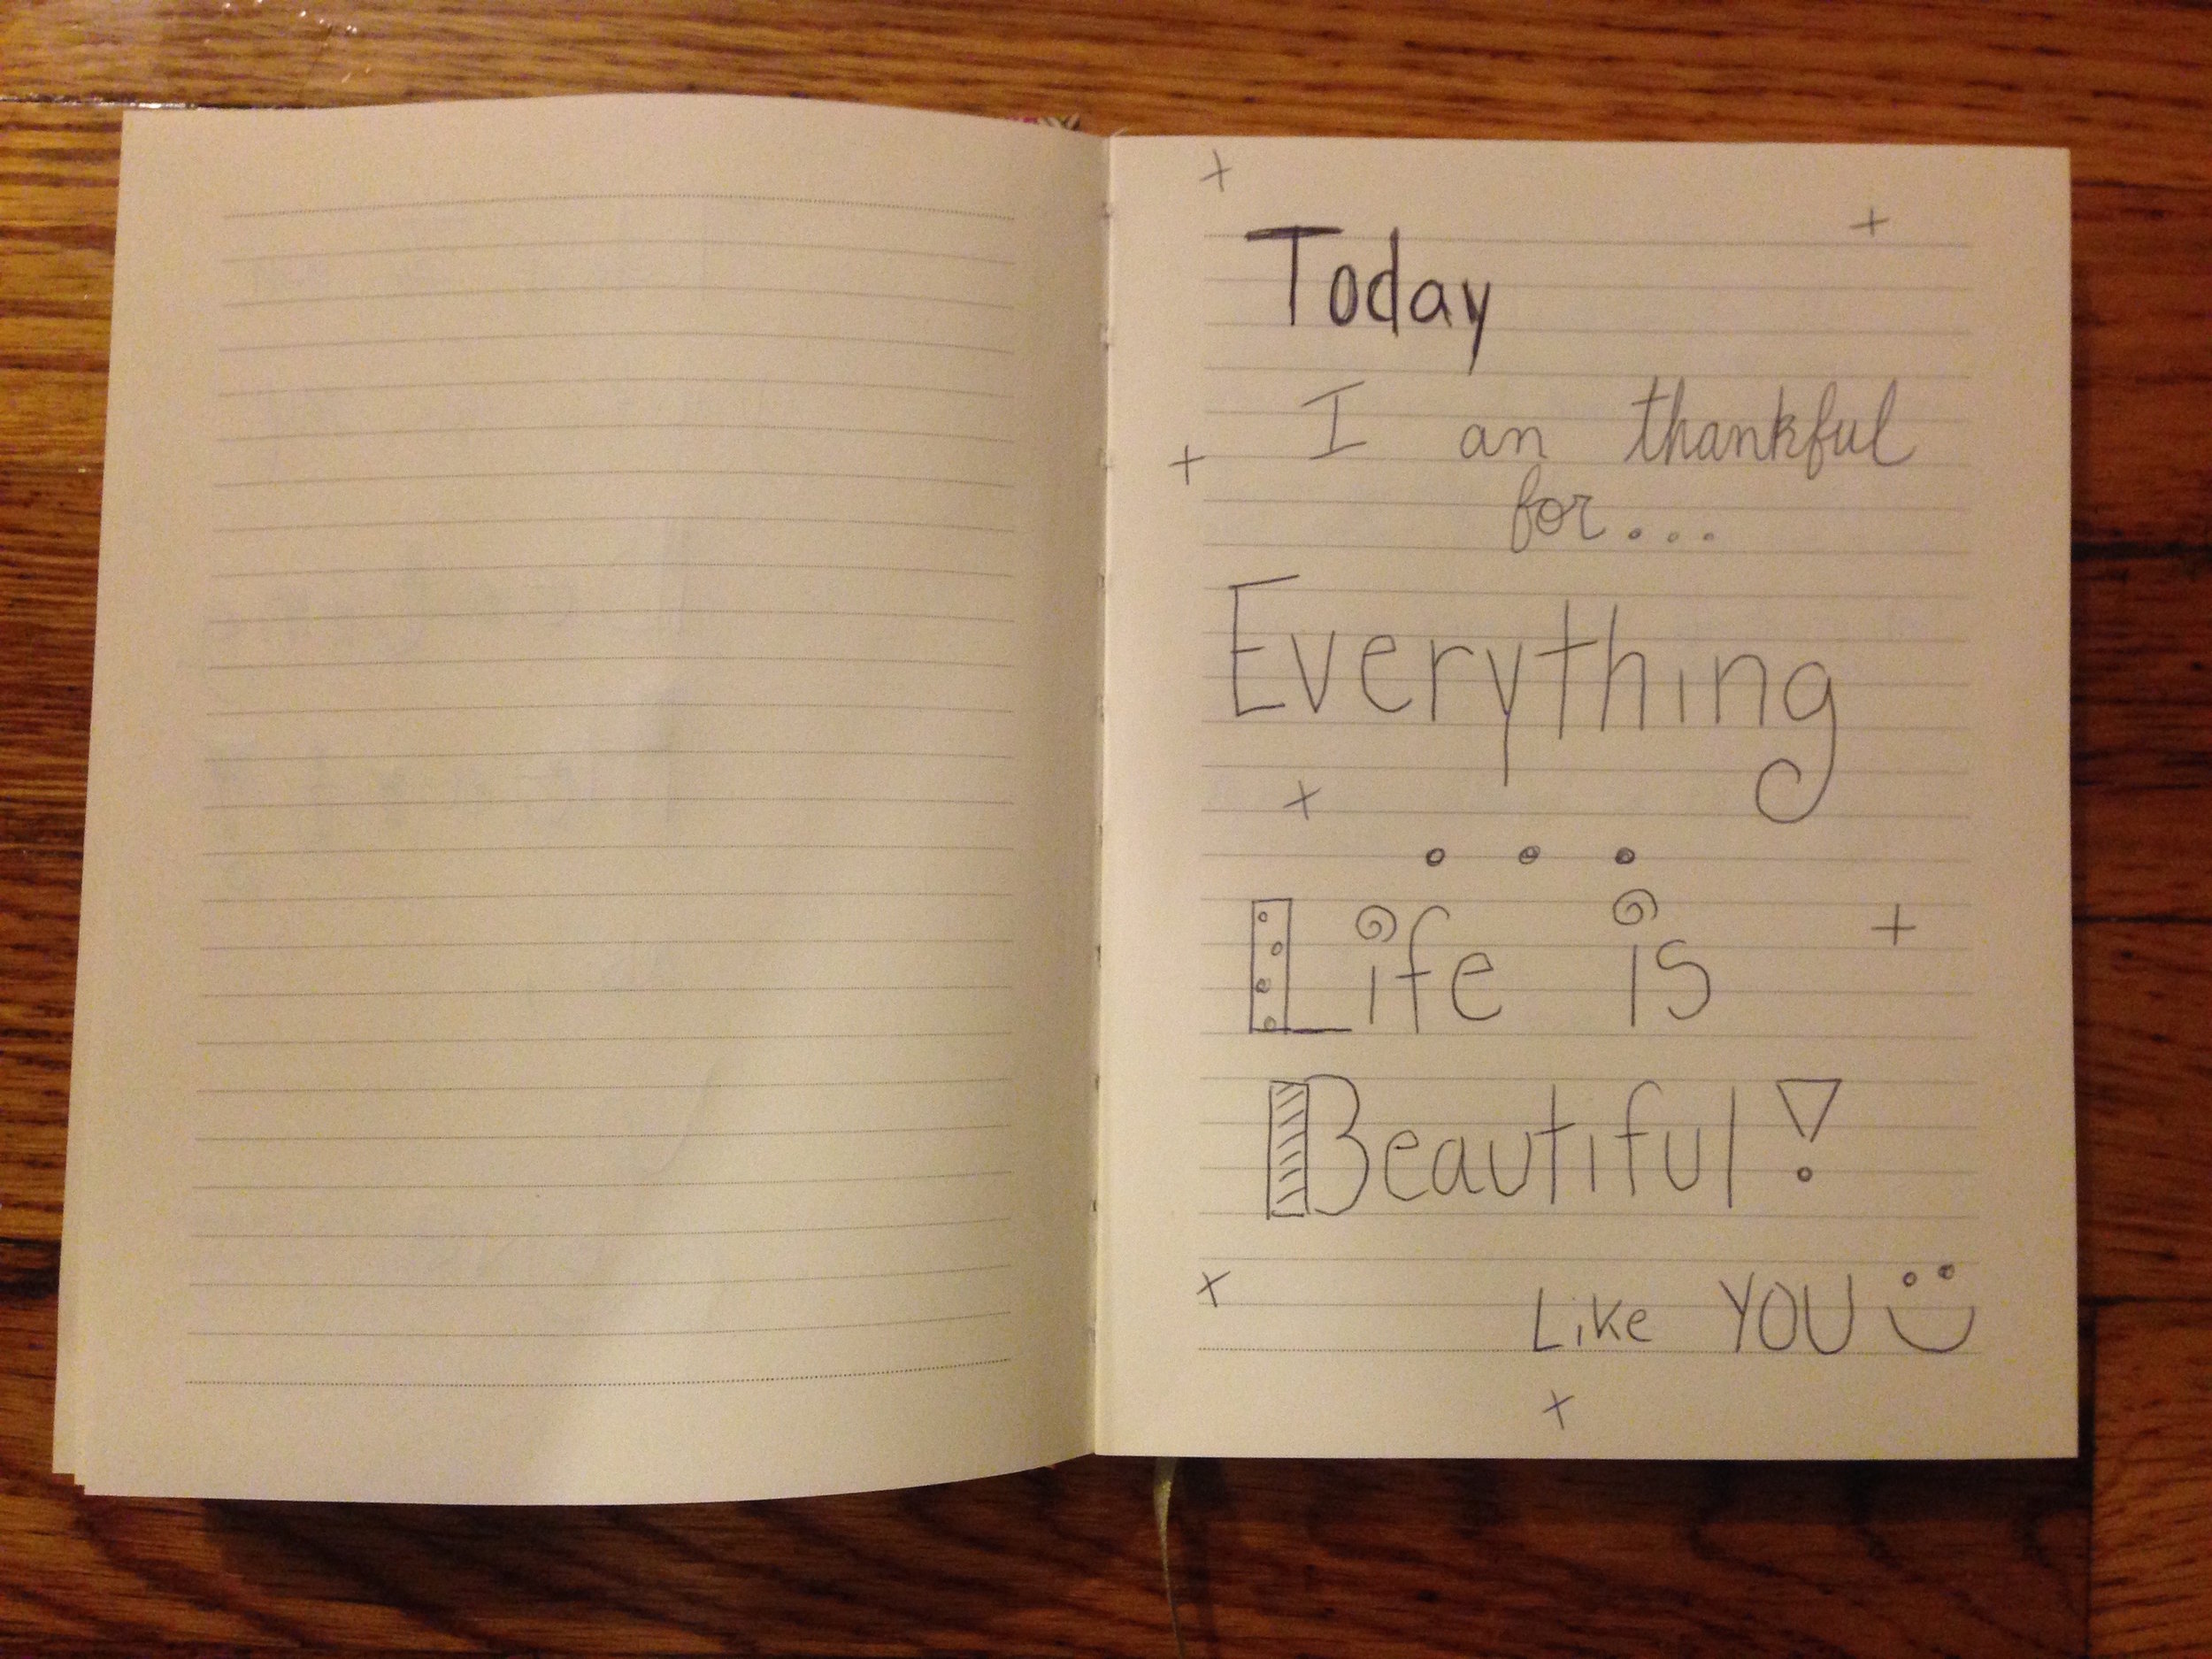 Today
I an thankful
for...
Everything
...
Life is
Beautiful!
Like YOU